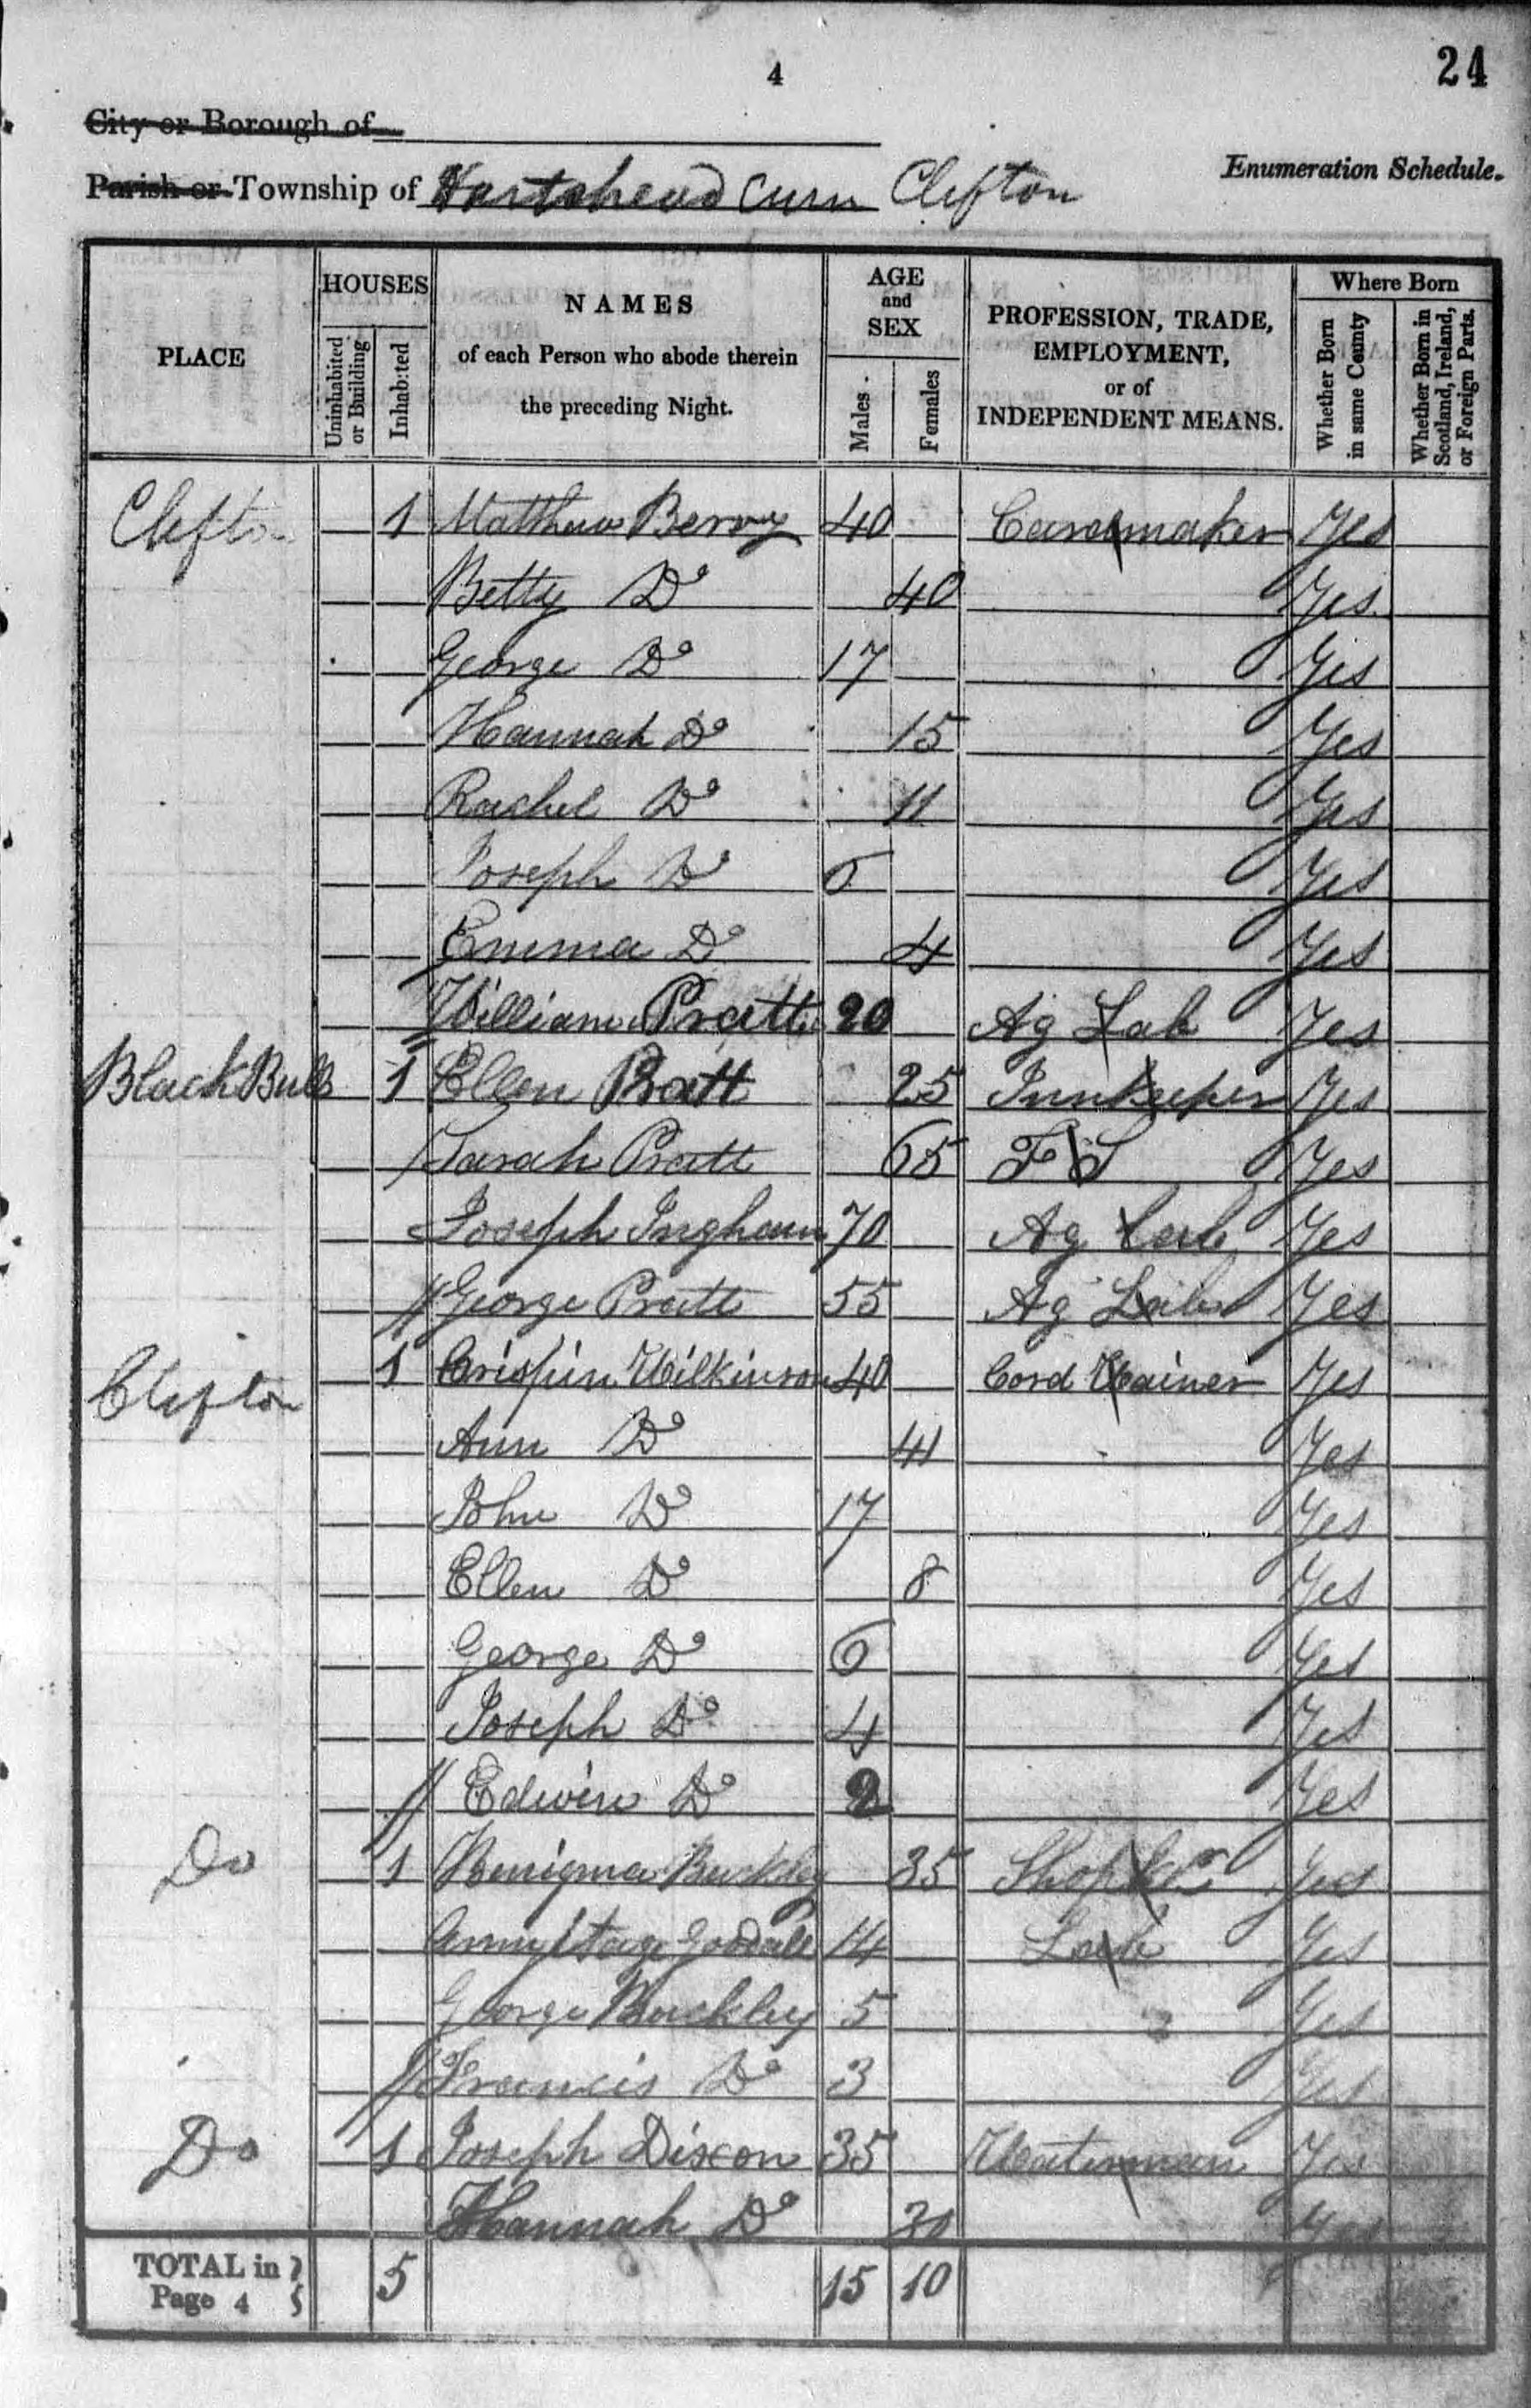 4
24
City or Borough of
Parish or Township of Hartshead cum Clifton
Enumeration Schedule.
PLACE
HOUSES
Uninhabited or Building
Inhabited
NAMES
of each Person who abode therein
the preceding Night.
AGE
and
SEX
Males
Females
PROFESSION, TRADE,
EMPLOYMENT,
or of
INDEPENDENT MEANS.
Where Born
Whether Born in same County
Whether Born in Scotland, Ireland, or Foreign Parts.
Clifton 1 Matthew Berry 40 Cardmaker Yes
Betty Do 40 Yes
George Do 17 Yes
Hannah Do 15 Yes
Rachel Do 11 Yes
Joseph Do 6 Yes
Emma Do 4 Yes
William Pratt 20 Ag Lab Yes
Black Bull 1 Ellen Pratt 25 Innkeeper Yes
Sarah Pratt 65 F S Yes
Joseph Ingham 70 Ag Lab Yes
George Pratt 55 Ag Lab Yes
Clifton 1 Crispin Wilkinson 40 Cord Wainer Yes
Ann Do 41 Yes
John Do 17 Yes
Ellen Do 8 Yes
George Do 6 Yes
Joseph Do 4 Yes
Edwin Do 2 Yes
Do 1 Benigma Buckley 35 Shop Kr Yes
Armytage Goodall 14 Lab Yes
George Buckley 5 Yes
Francis Do 3 Yes
Do 1 Joseph Dixon 35 Waterman Yes
Hannah Do 30 Yes
TOTAL in Page 4 5 15 10